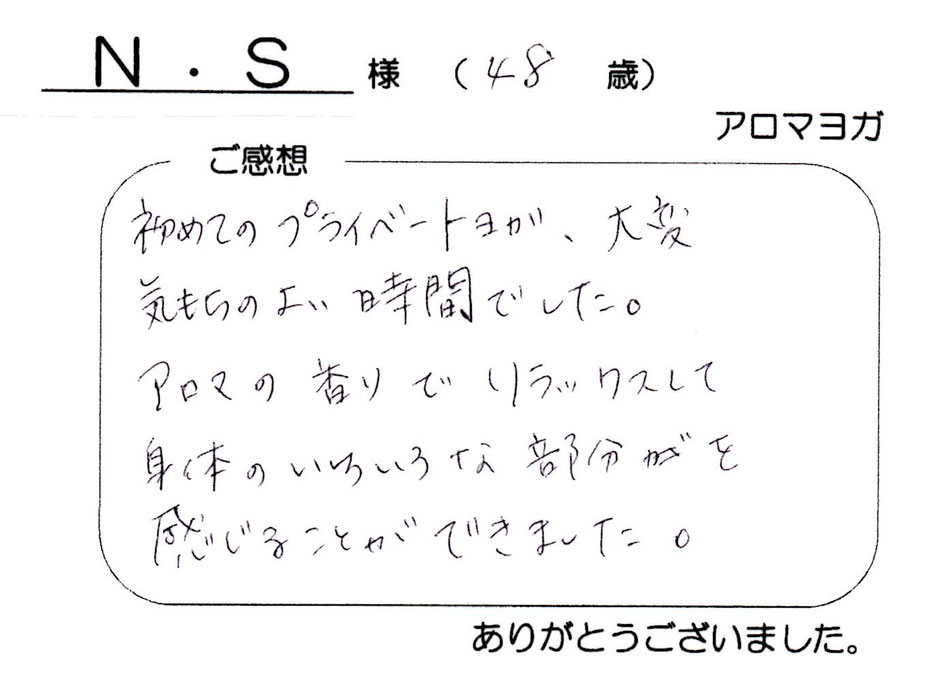 N・S 様 （48 歳）
アロマヨガ
ご感想
初めてのプライベートヨガ、大変
気もちのよい時間でした。
アロマの香りでリラックスして
身体のいろいろな部分がを
感じることができました。
ありがとうございました。